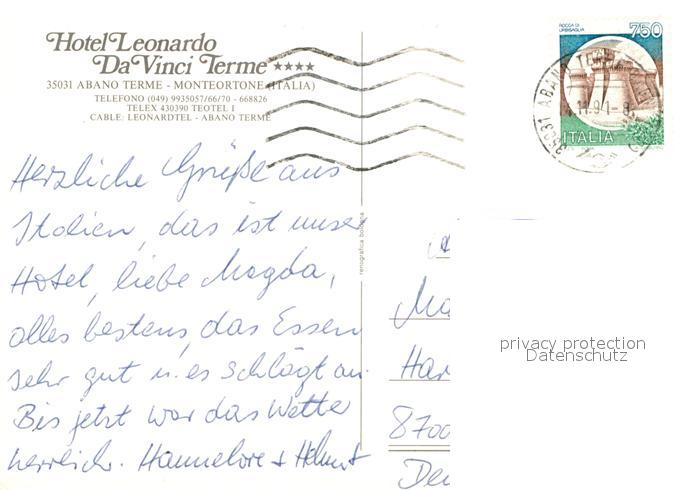 Hotel Leonardo
Da Vinci Terme ★★★★
35031 ABANO TERME - MONTEORTONE (ITALIA)
TELEFONO (049) 9935057/66/70 - 668826
TELEX 430390 TEOTEL I
CABLE: LEONARDTEL - ABANO TERME
ROCCA DI
URBISAGLIA
750
ITALIA
35031 ABANO TERME
11.91-8
Herzliche Grüße aus
Italien, das ist unser
Hotel, liebe Magda,
alles bestens, das Essen
sehr gut u. es schlägt an.
Bis jetzt war das Wetter
herrlich. Hannelore + Helmut
renografica bologna
Ma
Har
8700
Deu
privacy protection
Datenschutz